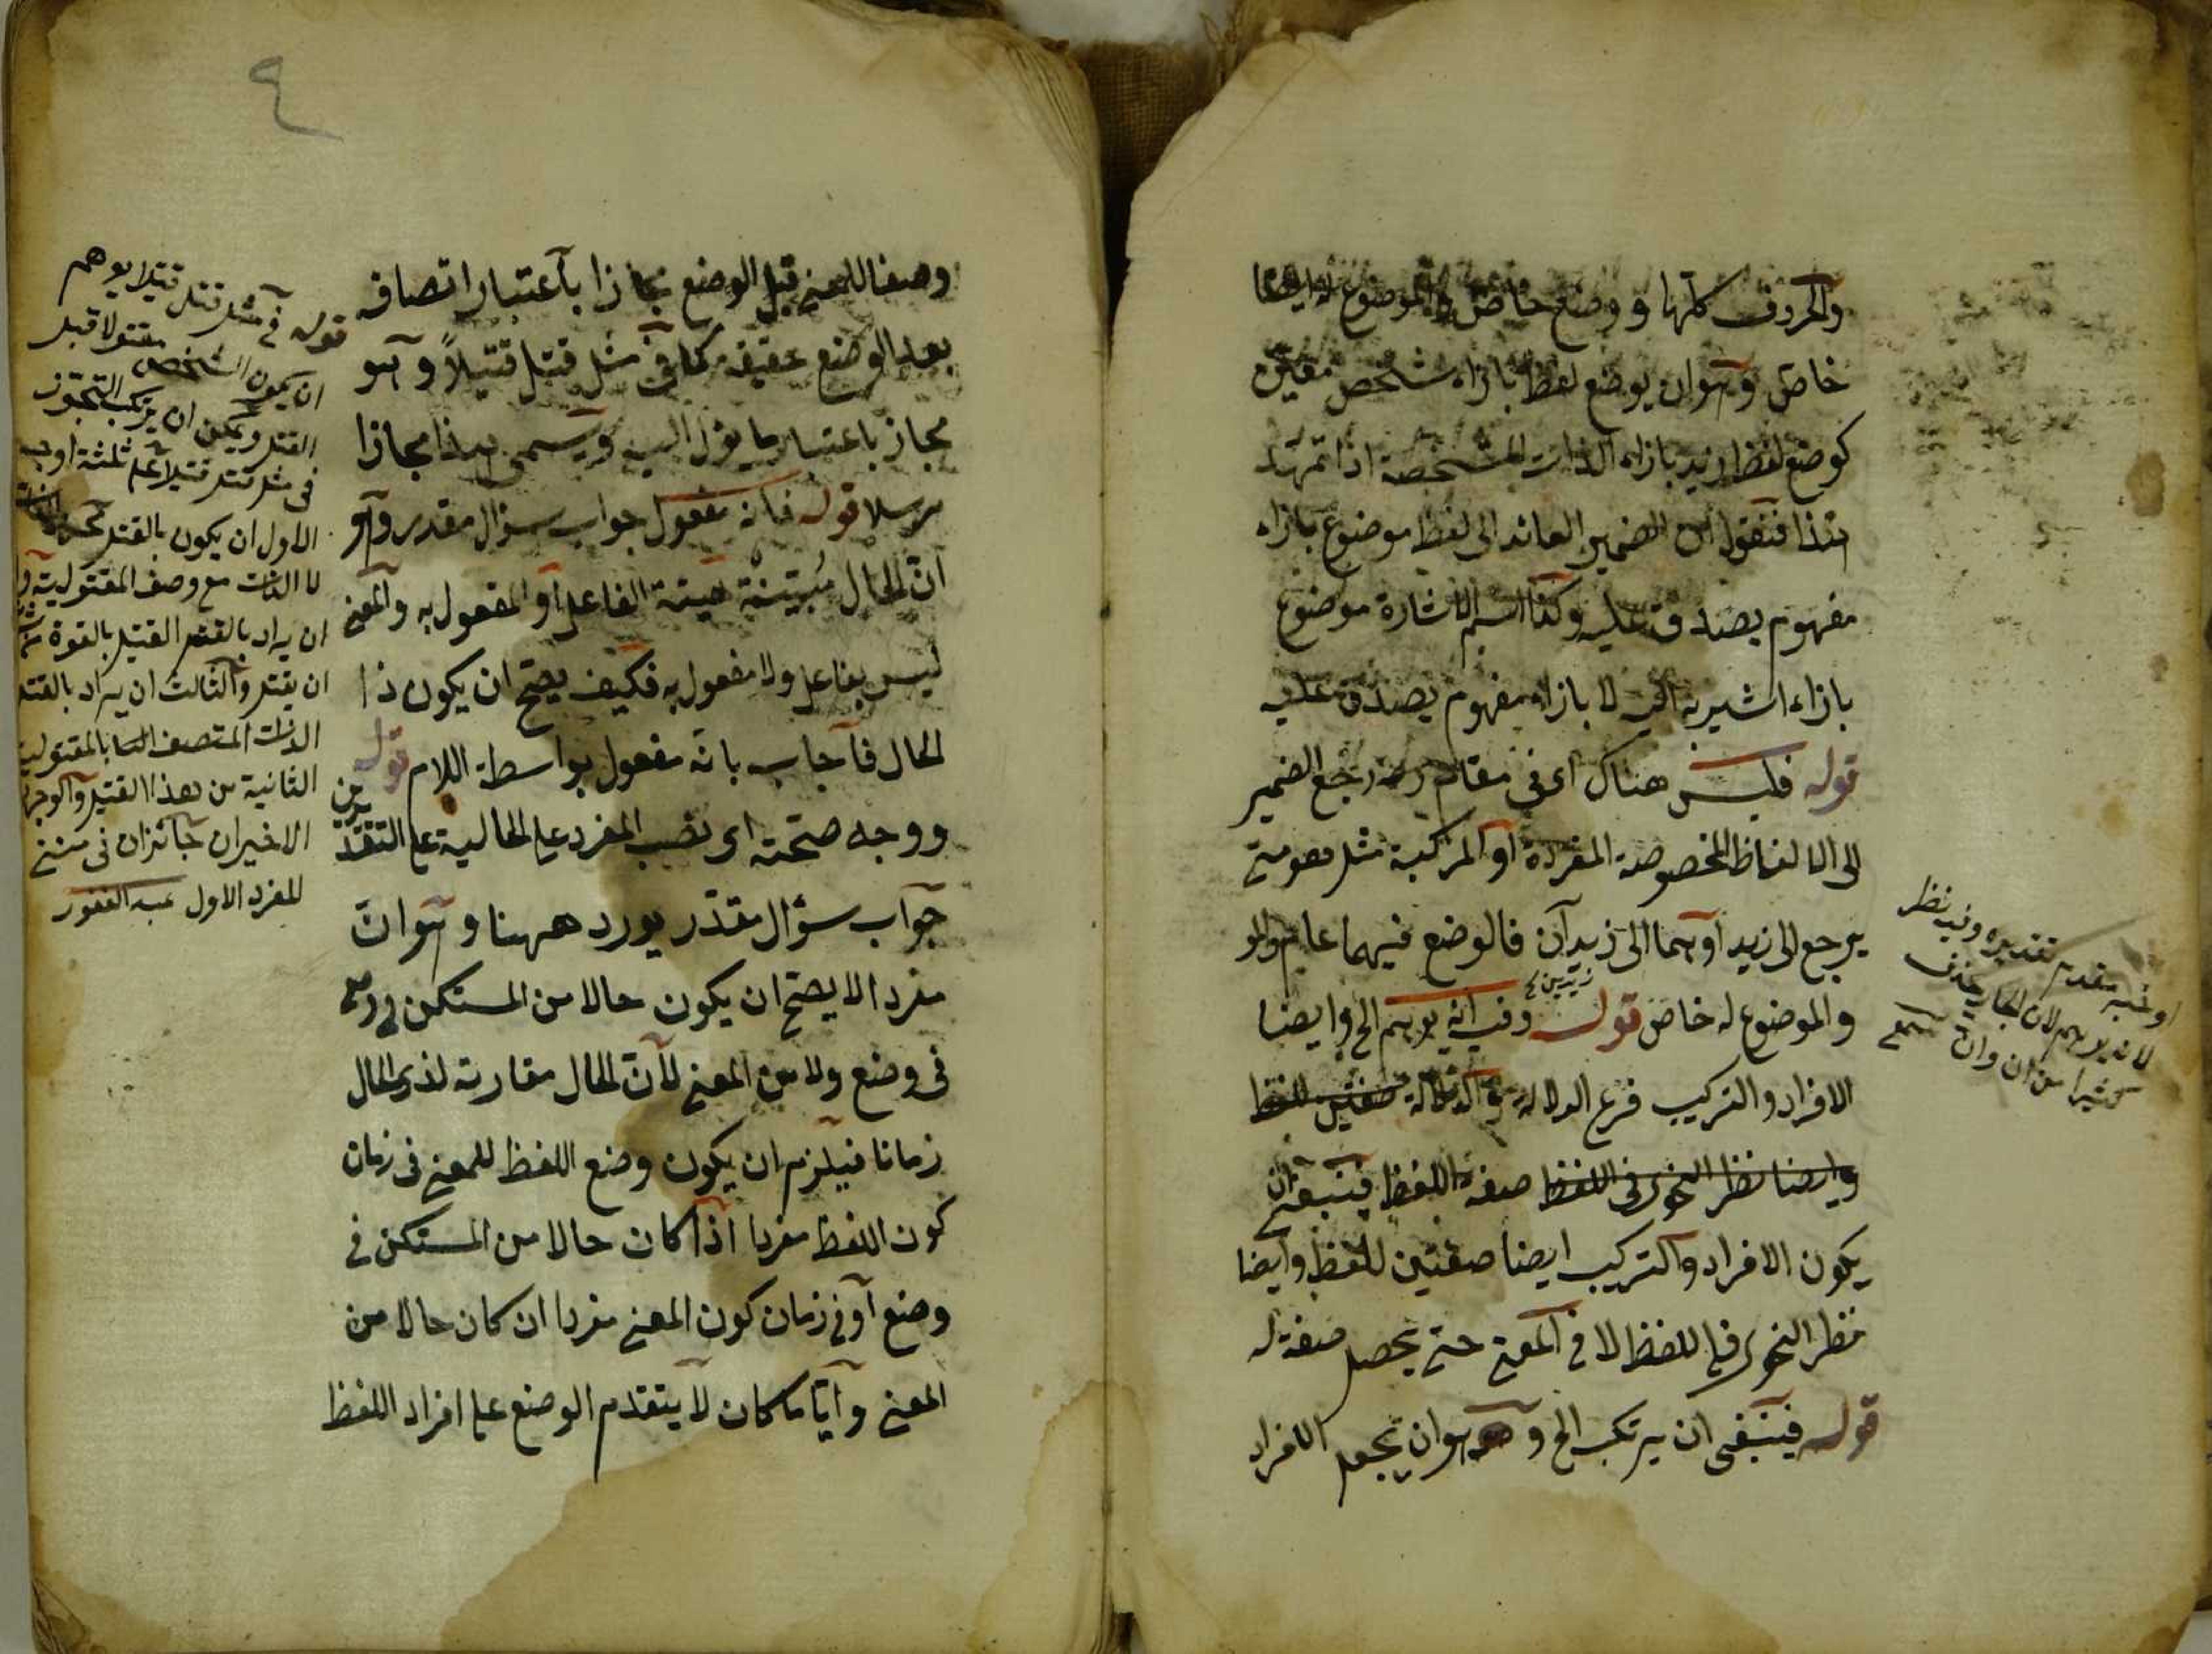 والحروف كلها ووضع خاص والموضوع له ايضا
خاص وهو ان يوضع لفظ بازاء شخص معين
كوضع لفظ زيد بازاء الذات المشخصة اذا تمهد
هذا فنقول ان الضمير العائد الى لفظ موضوع بازاء
مفهوم يصدق عليه وكذا اسم الاشارة موضوع
بازاء اشير به الى لا بازاء مفهوم يصدق عليه
قوله فليس هناك اى فى مقام رجع الضمير
الى الالفاظ المخصوصة المفردة او المركبة مثل هو متى
يرجع الى زيد او هما الى زيدان فالوضع فيهما عام
والموضوع له خاص قوله وفيه انه يوهم الخ وايضا
الافراد والتركيب فرع الدلالة والدلالة
صفة اللفظ فينبغى ان
يكون الافراد والتركيب ايضا صفتين للفظ وايضا
نظر النحوى فى اللفظ لا فى المعنى حتى يحصل صفة له
قوله فينبغى ان يرتكب الخ وهو ان يجعل الافراد
او خبر مقدم تقديره وفيه نظر
لانه يوهم لان الجار يحذف
كثيرا من ان وان
٤
وصفا للمعنى قبل الوضع مجازا باعتبار اتصافه
بعد الوضع حقيقة كما فى مثل قتل قتيلاً وهو
مجاز باعتبار ما يؤل اليه ويسمى هذا مجازا
مرسلا قوله فانه مفعول جواب سؤال مقدر وهو
ان الحال مبينة هيئة الفاعل او المفعول به والمعنى
ليس بفاعل ولا مفعول به فكيف يصح ان يكون ذا
الحال فاجاب بانه مفعول بواسطة اللام قوله
ووجه صحته اى نصب المفرد على الحالية على التقديرين
جواب سؤال مقدر يورد ههنا وهو ان
مفردا لا يصح ان يكون حالا من المستكن
فى وضع ولا من المعنى لان الحال مقارنة لذى الحال
زمانا فيلزم ان يكون وضع اللفظ للمعنى فى زمان
كون اللفظ مفردا اذا كان حالا من المستكن فى
وضع او فى زمان كون المعنى مفردا ان كان حالا من
المعنى وايّا ما كان لا يتقدم الوضع على افراد اللفظ
قوله فى مثل قتل قتيلا يوهم
ان يكون الشخص مقتولا قبل
القتل ويمكن ان يرتكب التجوز
فى مثل قتل قتيلا على ثلثة اوجه
الاول ان يكون بالقتل
لا الذات مع وصف المقتولية
ان يراد بالقتل القتيل بالقوة
ان يقتل والثالث ان يراد بالقتل
الذات المتصف بالمقتولية
الثانية من هذا القتيل والوجهان
الاخيران جائزان فى معنى
المفرد الاول عبد الغفور